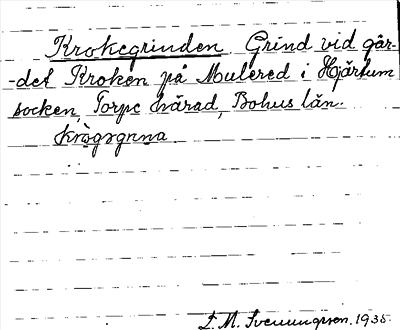 Krokegrinden Grind vid går-
-det Kroken på Mulered i Hjärtum
socken, Torpe härad, Bohus län.
L. M. Svenungsson. 1935.